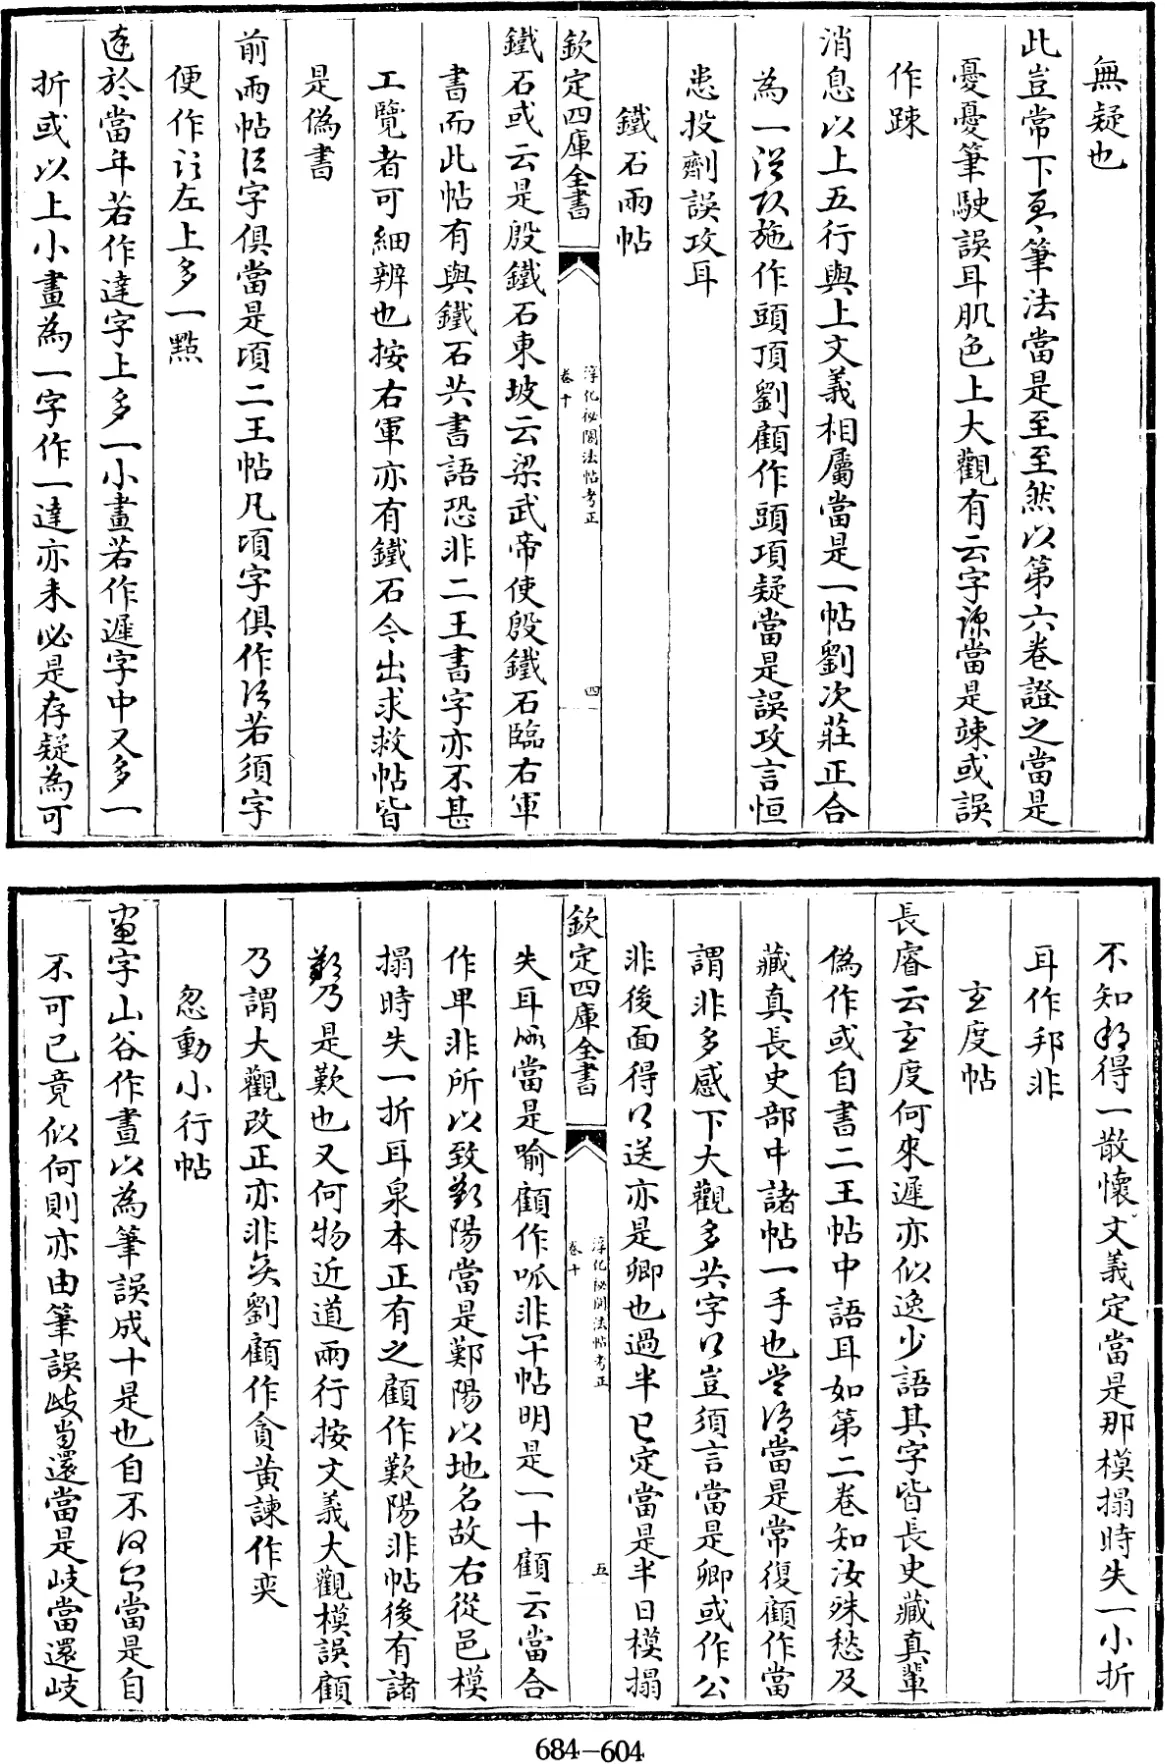 無疑也
此豈常下筆法當是至至然以第六卷證之當是
憂憂筆駛誤耳肌色上大觀有云字當是竦或誤
作踈
消息以上五行與上文義相屬當是一帖劉次莊正合
為一施作頭頂劉顧作頭項疑當是誤攻言恒
患投劑誤攻耳
鐵石兩帖
欽定四庫全書
淳化祕閣法帖考正
卷十
四
鐵石或云是殷鐵石東坡云梁武帝使殷鐵石臨右軍
書而此帖有與鐵石共書語恐非二王書字亦不甚
工覽者可細辨也按右軍亦有鐵石今出求救帖皆
是偽書
前兩帖字俱當是頃二王帖凡頃字俱作若須字
便作左上多一點
達於當年若作達字上多一小畫若作遲字中又多一
折或以上小畫為一字作一達亦未必是存疑為可
不知得一散懷文義定當是那模搨時失一小折
耳作邦非
玄度帖
長睿云玄度何來遲亦似逸少語其字皆長史藏真輩
偽作或自書二王帖中語耳如第二卷知汝殊愁及
藏真長史部中諸帖一手也當是常復顧作當
謂非多感下大觀多共字豈須言當是卿或作公
非後面得送亦是卿也過半已定當是半日模搨
欽定四庫全書
淳化祕閣法帖考正
卷十
五
失耳當是喻顧作呱非帖明是一十顧云當合
作甲非所以致陽當是鄴陽以地名故右從邑模
搨時失一折耳泉本正有之顧作歎陽非帖後有諸
乃是歎也又何物近道兩行按文義大觀模誤顧
乃謂大觀改正亦非矣劉顧作貪黃諫作奕
忽動小行帖
字山谷作晝以為筆誤成十是也自不當是自
不可已竟似何則亦由筆誤還當是岐當還岐
684-604